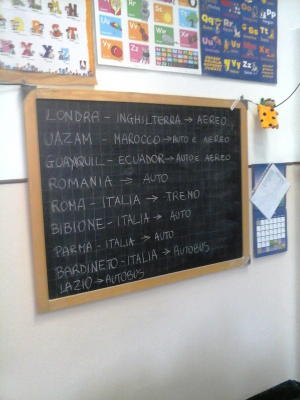 LONDRA - INGHILTERRA → AEREO
UAZAM - MAROCCO → AUTO E AEREO
GUAYAQUIL - ECUADOR → AUTO E AEREO
ROMANIA → AUTO
ROMA - ITALIA → TRENO
BIBIONE - ITALIA → AUTO
PARMA - ITALIA → AUTO
BARDINETO - ITALIA → AUTOBUS
LAZIO → AUTOBUS